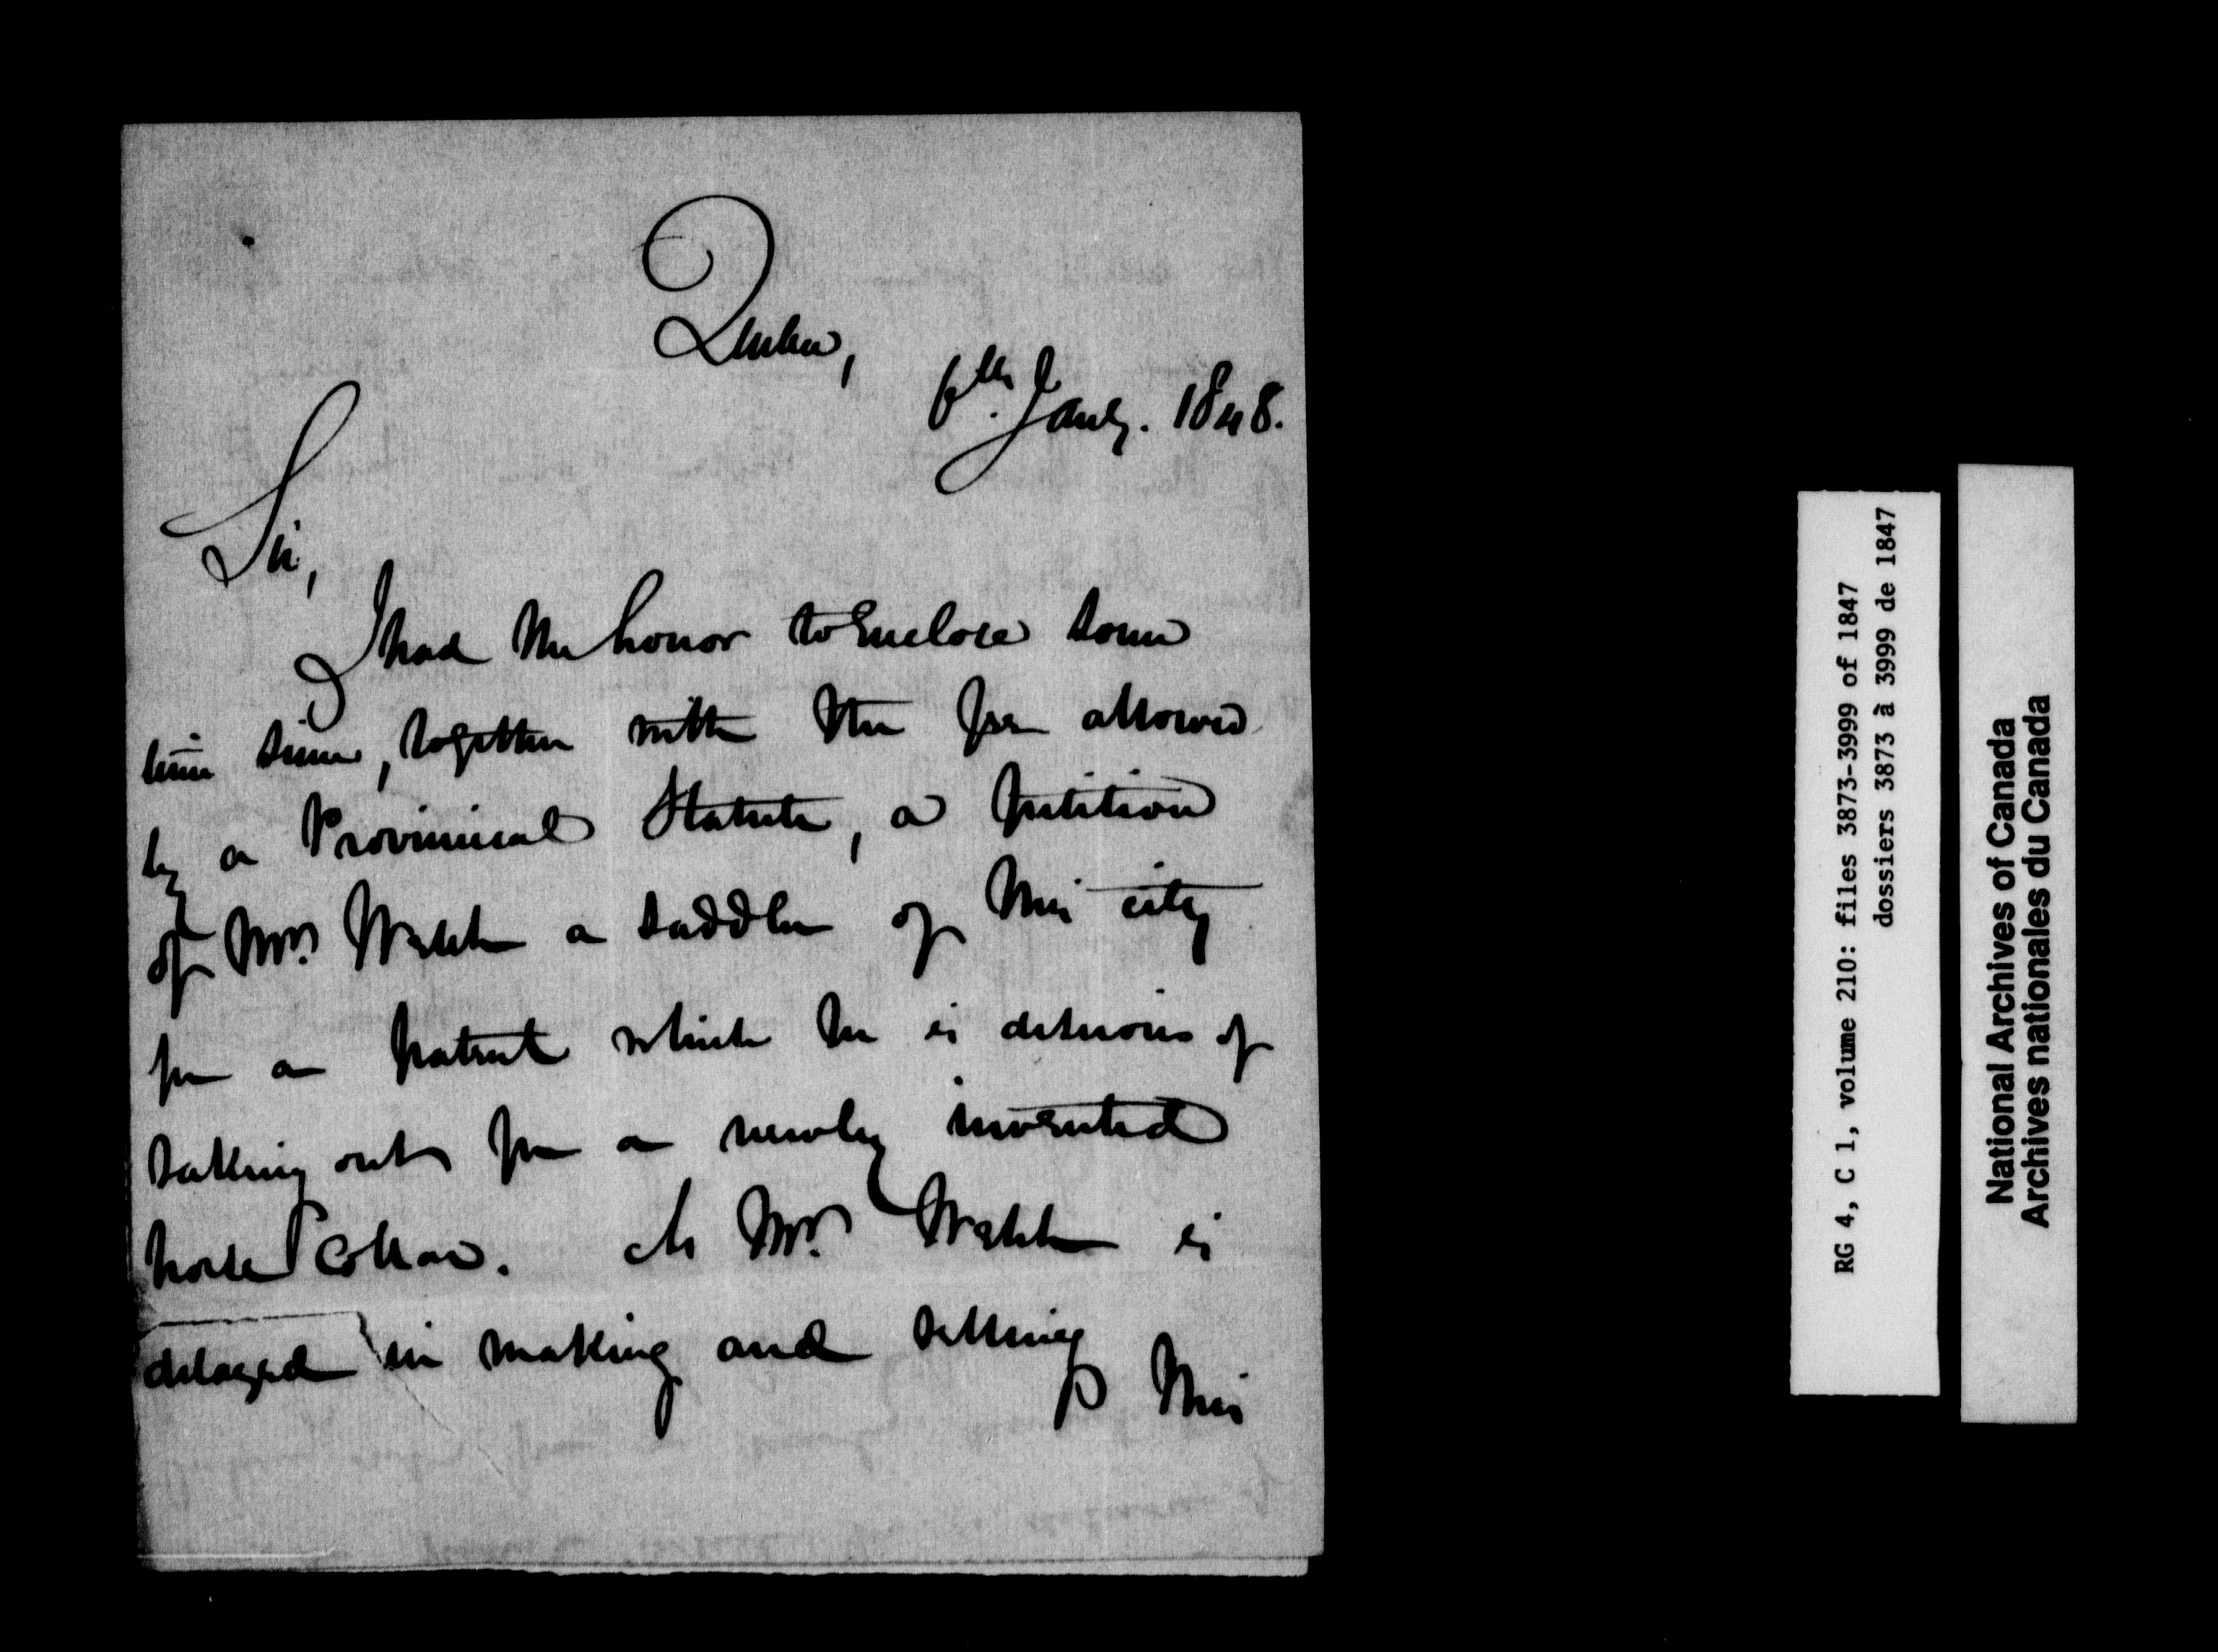 Quebec,
6th. Jany. 1848.
Sir,
I had the honor to enclose some
time since, together with the fee allowed
by a Provincial Statute, a petition
of Mr. Welch a saddler of this city
for a patent which he is desirous of
taking out for a newly invented
horse Collar. As Mr. Welch is
delayed in making and selling
this
RG 4, C 1, volume 210: files 3873-3999 of 1847
dossiers 3873 à 3999 de 1847
National Archives of Canada
Archives nationales du Canada